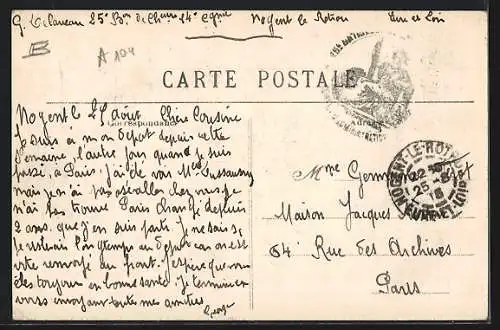 G. Delaveau 25e Bon de Chrs 14e Cgnie Nogent le Rotrou Eure et Loir
B
A 104
CARTE POSTALE
Correspondance
Adresse
Nogent le 25 Août Chère Cousine
Je suis à mon dépôt depuis cette
semaine, l'autre jour quand je suis
passé à Paris j'ai été voir Mme
mais je n'ai pas été aller chez vous je
n'ai pas trouvé Paris changé depuis
2 ans que j'en suis parti. Je ne sais si
je resterai longtemps au dépôt car on est
vite renvoyé au front. J'espère que vous
êtes toujours en bonne santé. Je termine en
vous envoyant toute mes amitiés
George
Mme
Maison Jacques
64 Rue des Archives
Paris
NOGENT-LE-ROTROU
25 -8
EURE-ET-LOIR